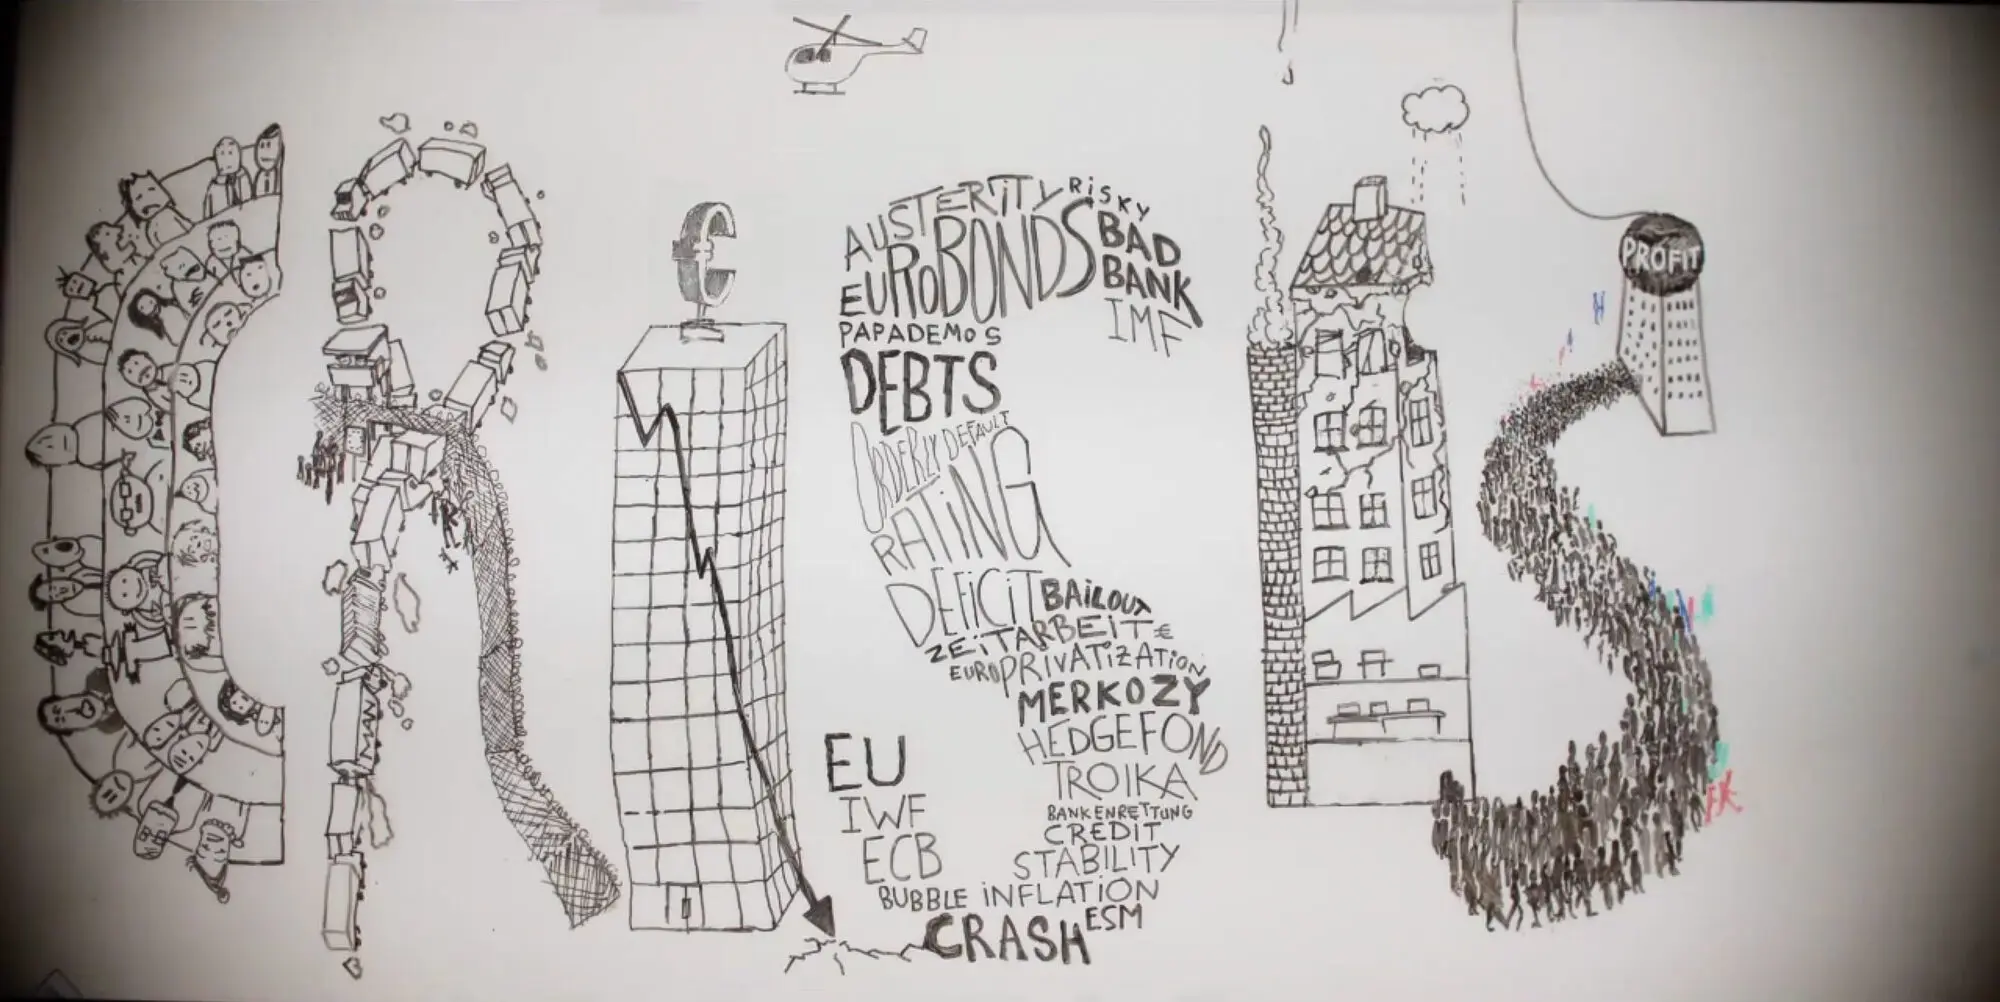 AUSTERITY RiSKY
EUROBONDS BAD
BANK
PAPADEMOS IMF
DEBTS
ORDERLY DEFAULT
RATiNG
DEFiCiT BAiLOUT
ZEiTARBEIT €
EURO PRiVATiZATiON
MERKOZY
HEDGEFOND
TROIKA
BANKENRETTUNG
CREDIT
STABILITY
EU
IWF
ECB
BUBBLE iNFLATION
CRASH ESM
€
MAN
PROFIT